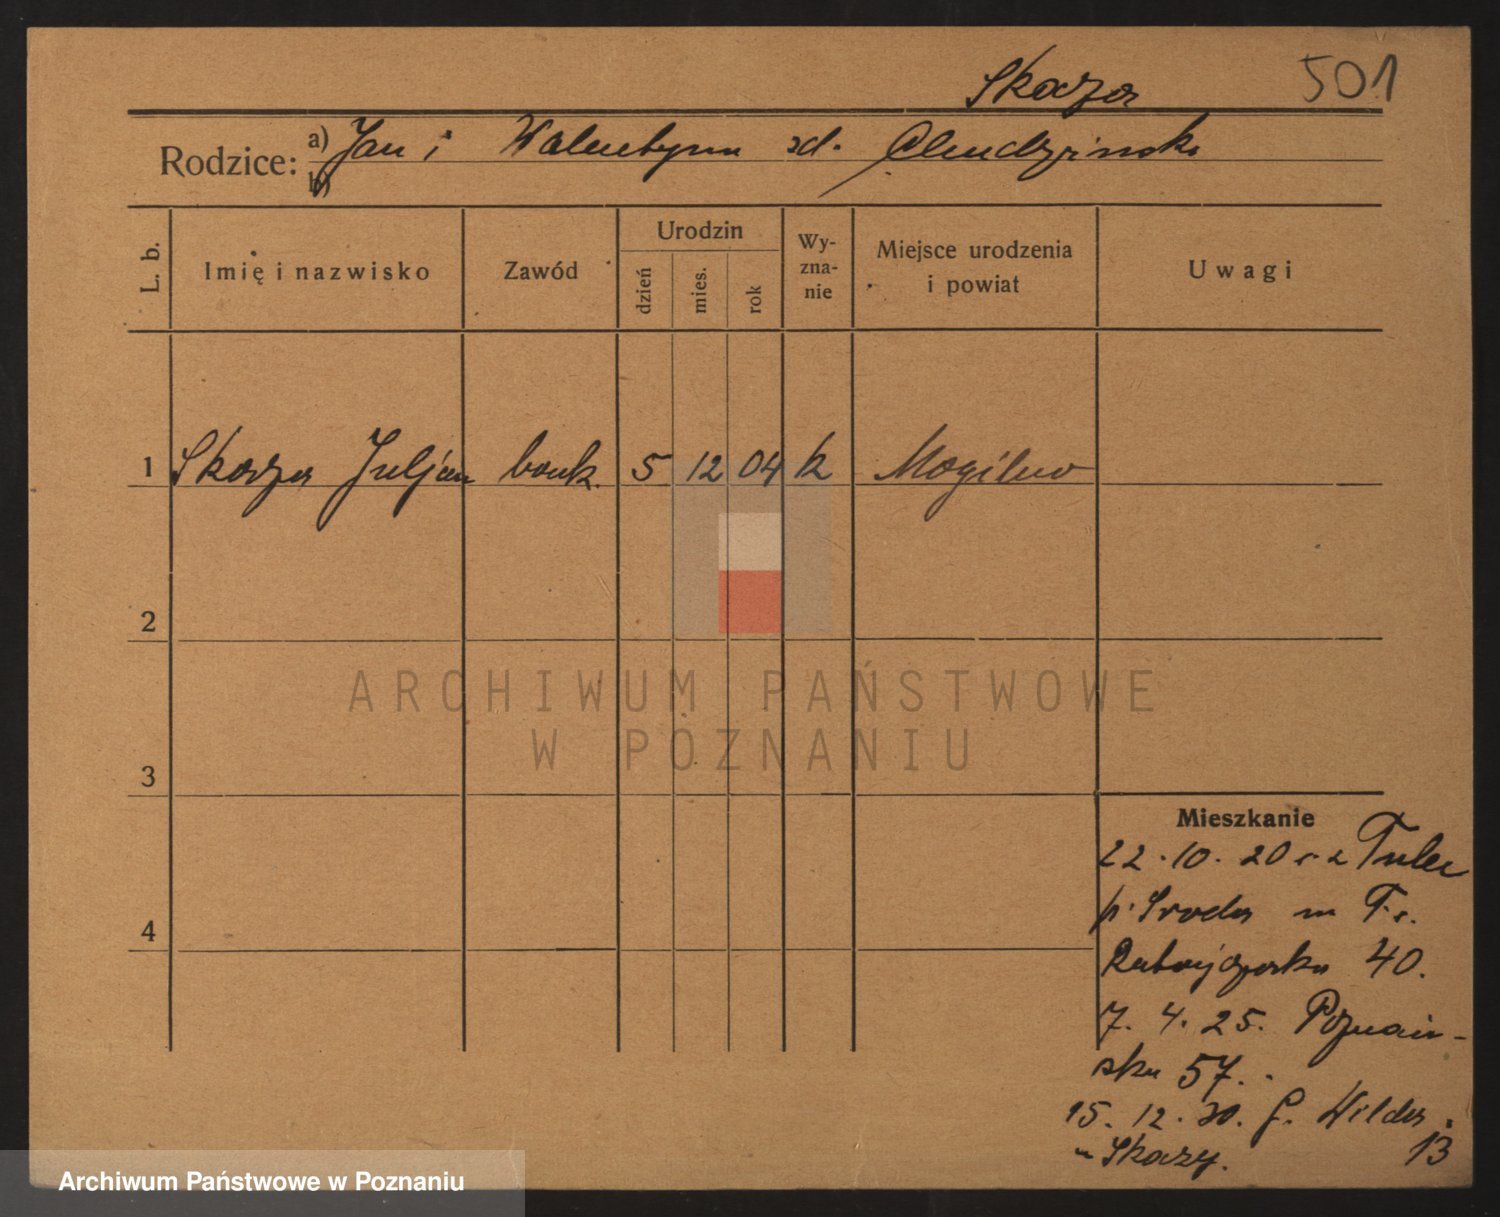 Skorza 501
Rodzice: a) Jan i Walentyna zd. Chudzińska
b)
L. b. Imię i nazwisko Zawód Urodzin dzień mies. rok Wyznanie Miejsce urodzenia i powiat Uwagi
1 Skorza Juljan bank. 5 12 04 k Mogilno
2
ARCHIWUM PAŃSTWOWE
W POZNANIU
3
4
Mieszkanie
22.10.20 r. z Tulec
p. Środa
40.
7. 4. 25. Poznań-
ska 57.
15. 12. 30. G. Wilda
u Skorzy. 13
Archiwum Państwowe w Poznaniu